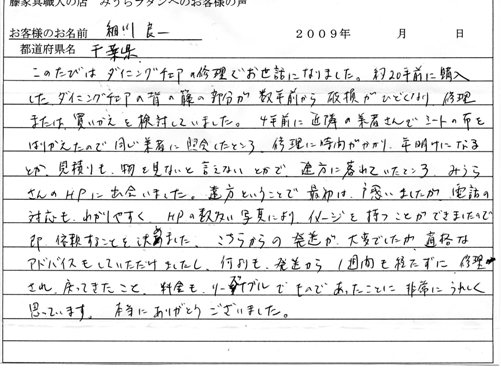 藤家具職人の店 みうらラタンへのお客様の声
お客様のお名前 細川 良一 2009年 月 日
都道府県名 千葉県
このたびは ダイニングチェアの修理でお世話になりました。約20年前に購入
した ダイニングチェアの背の籐の部分が 数年前から 破損がひどくなり 修理
または 買いかえを 検討していました。4年前に 近隣の業者さんで シートの布を
はりかえたので 同じ業者に 照会したところ、修理に時間がかかり 年明けになる
とか、見積りも 物を見ないと言えない とかで、途方に暮れていたところ みうら
さんのHPに出会いました。遠方ということで 最初は 戸惑いましたが、電話の
対応も わかりやすく、HPの数ない写真により イメージを持つことができましたので
即 依頼することを決めました。こちらからの 発送が 大変でしたが 適格な
アドバイスもしていただけましたし、何よりも 発送から 1週間も経たずに 修理
され、戻ってきたこと、料金も リーズナブルでものであったことに 非常に うれしく
思っています。本当にありがとうございました。